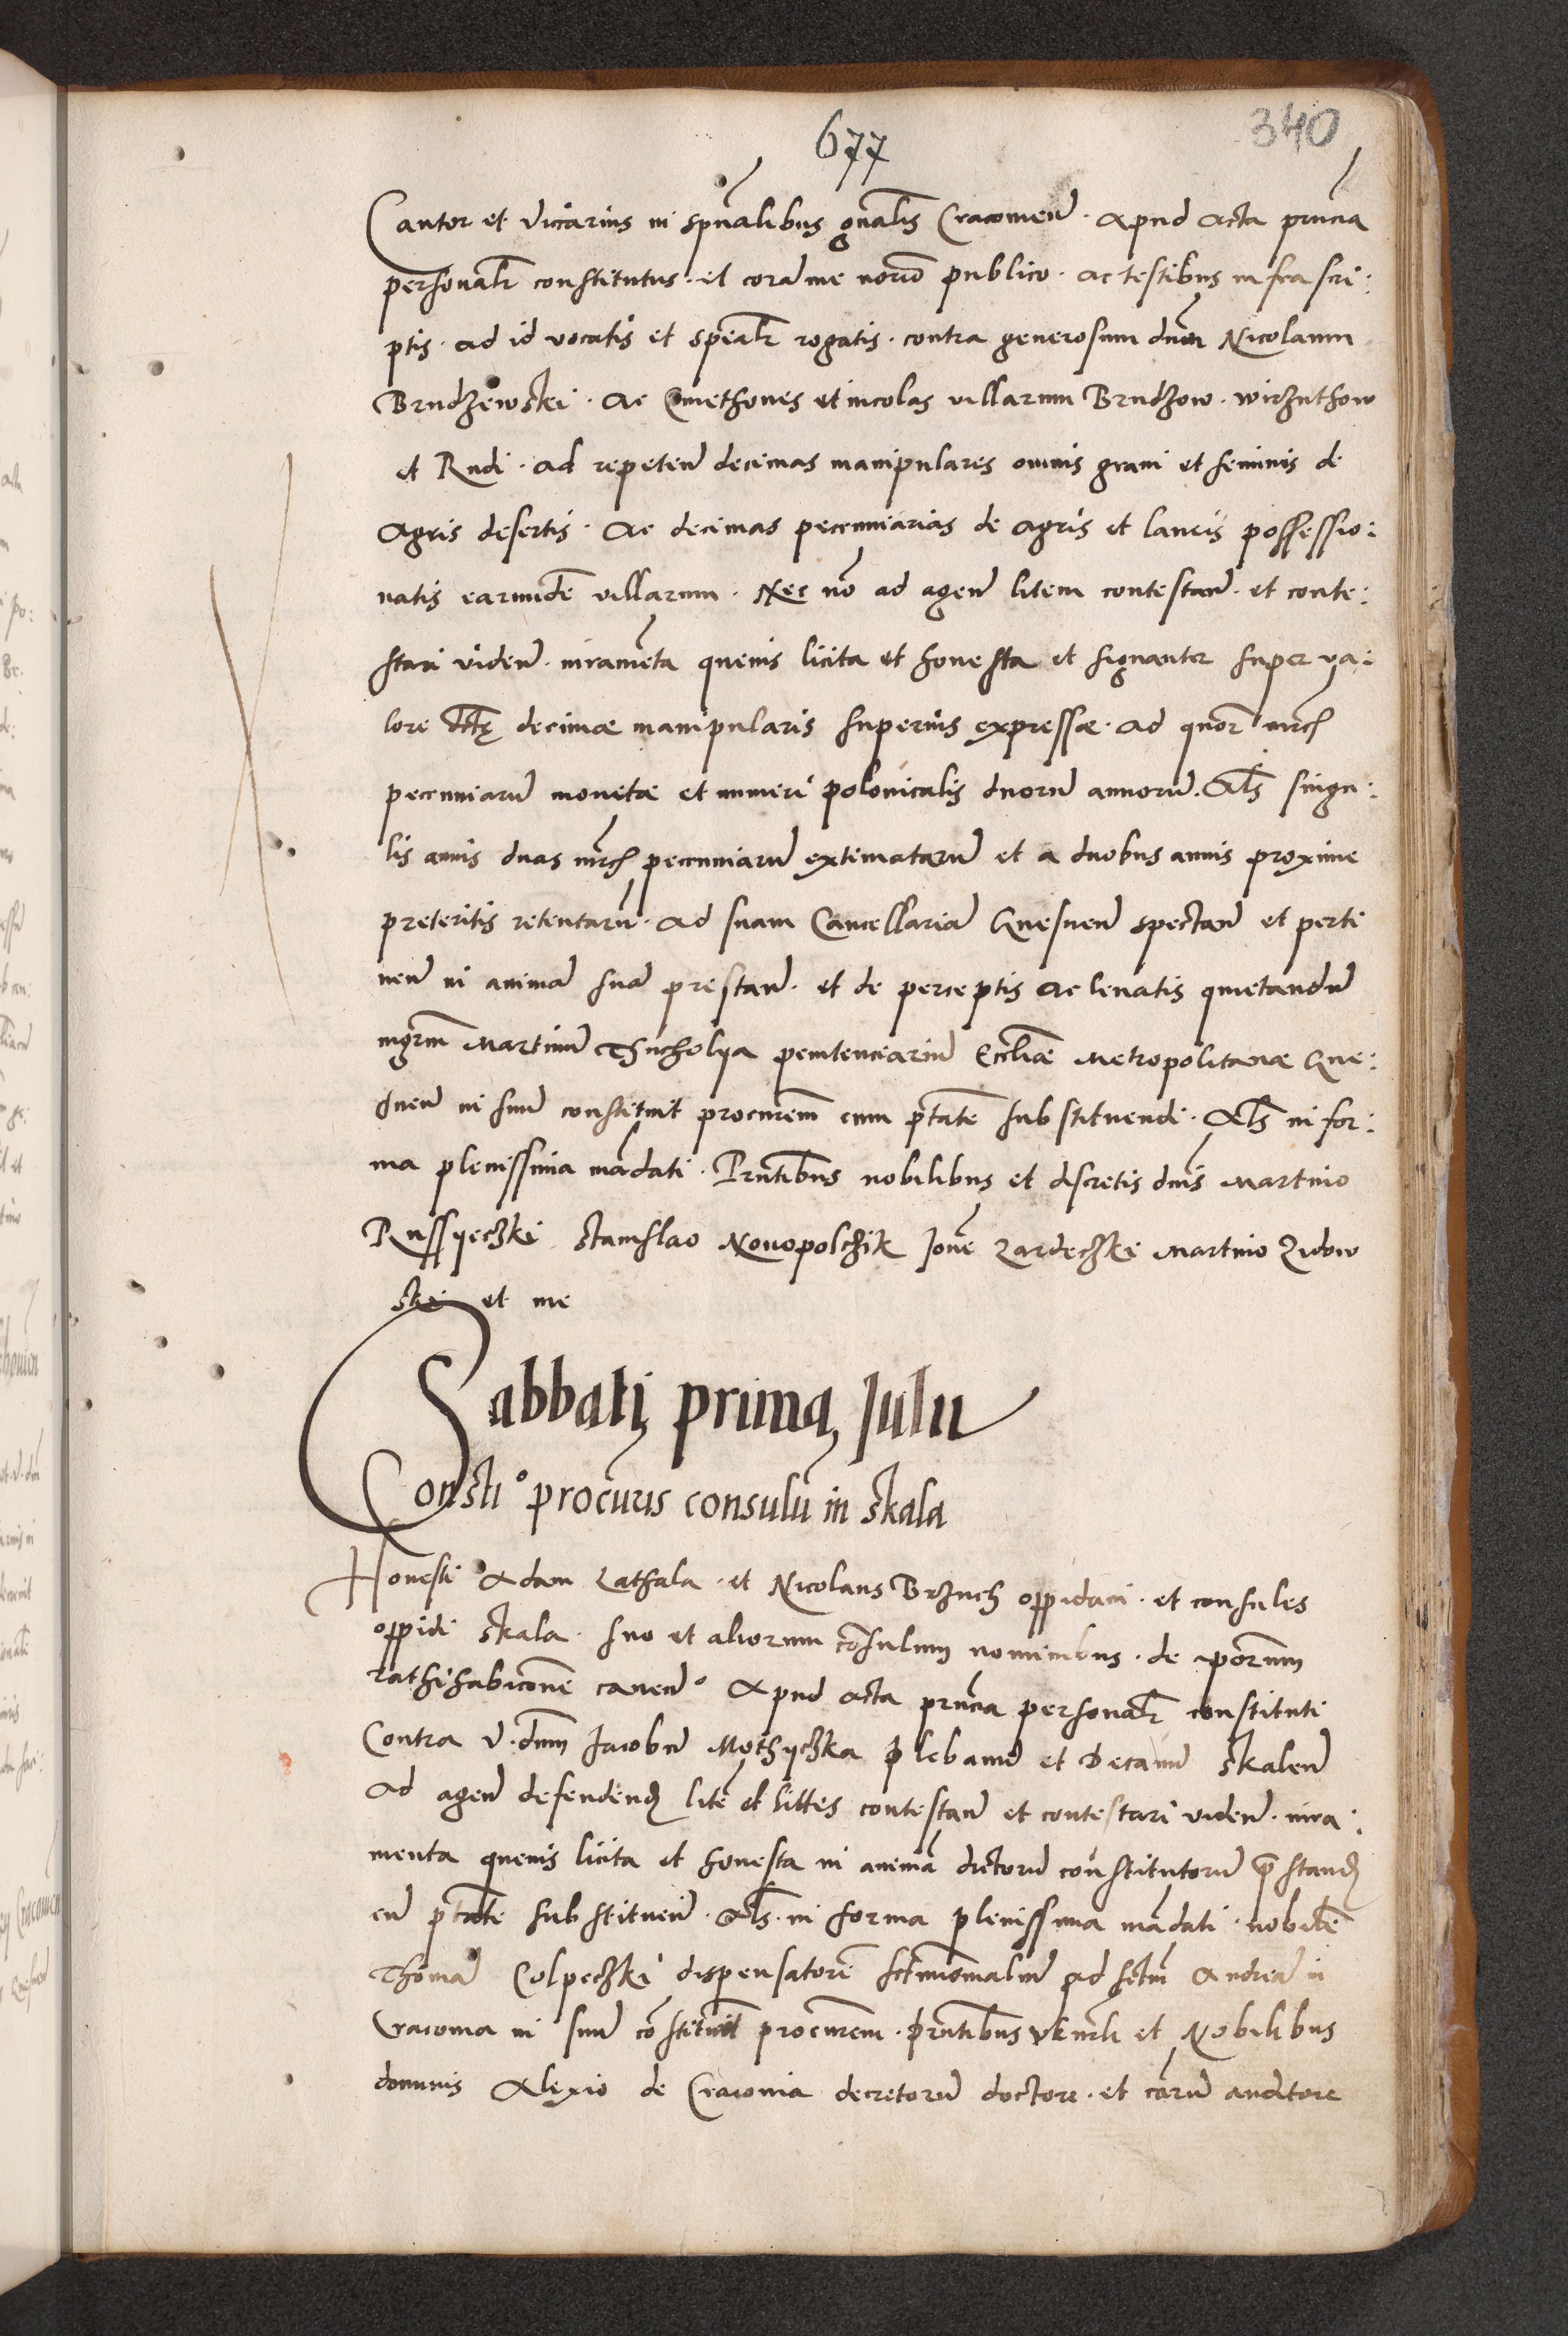 677
340
Cantor et Vicarius in spũalibus gñalis Cracovieñ · Apud Acta pñcia
personalr constitutus · et corã me norio publico · ac testibus infra scri:
ptis · ad id vocatis et spealr rogatis · contra generosum dñm Nicolaum
Brudzewski · Ac Cmethones et incolas villarum Brudzow · wirzuthow
et Rudi · ad repeteñ decimas manipulares omnis grani et seminis de
Agris desertis · Ac decimas pecunniarias de agris et laneis possessio:
natis earundẽ villarum · Nec nõ ad ageñ litem contestañ · et conte:
stari videñ · iuramẽta quevis licita et honesta et signanter super va:
lore dctę decimæ manipularis superius expressæ · ad quor mrc
pecunniarũ monetæ et numeri polonicalis duorũ annorũ. Als singu:
lis annis duas mrc pecunniarũ extimatarũ et a duobus annis proxime
preteritis retentarũ · ad suam Cancellariã Gnesneñ spectañ et perti
neñ in animã suã prestañ · et de perceptis ac levatis quietandũ
mgrm Martinũ Thucholya penitenciariũ Eccliæ Metropolitanæ Gne:
sneñ in suũ constituit procurem cum ptate substituendi · Als in for:
ma plenissima mãdati · Pñtibus nobilibus et discretis dnis Martino
Russyeczki Stanislao Novopolczik Joñe Zardeczki Martino Zidow
ski et me
Sabbati, prima, Julii
Constio procuris consulũ in Skala
Honesti Adam Lathala · et Nicolaus Brzuch oppidani · et consules
oppidi Skala · suo et aliorum cõsulum nominibus · de iporum
rathihabicone caveñ · Apud acta pñcia personalr constituti
Contra V. dnm Jacobũ Mothyczka plebanũ et Decanũ Skaleñ
Ad ageñ defendend litẽ et littes contestañ et contestari videñ · iura:
menta quevis licita et honesta in animã dictorũ constitutorũ prestand
cũ ptate substitueñ · Als · in forma plenissima mãdati · nobilẽ
Thomã Colpeczki dispensatorẽ ad sctum Andreã in
Cracovia in suũ cõstituit procurem · pñtibus Vknrli et Nobilibus
dominis Alexio de Cracovia decretorũ doctore · et cãrũ auditore